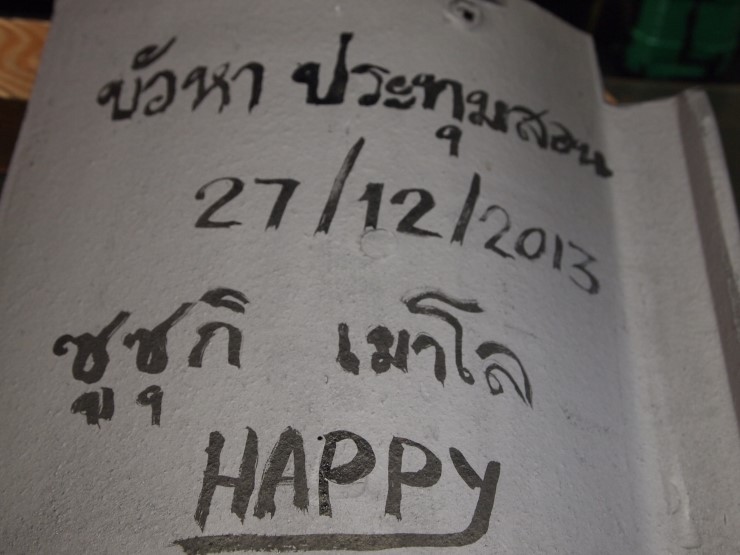 บัวหา ประทุมสอน
27/12/2013
ซูซุกิ เมาโล
HAPPY